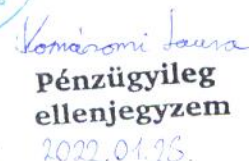 Komáromi Laura
Pénzügyileg
ellenjegyzem
2022.01.25.